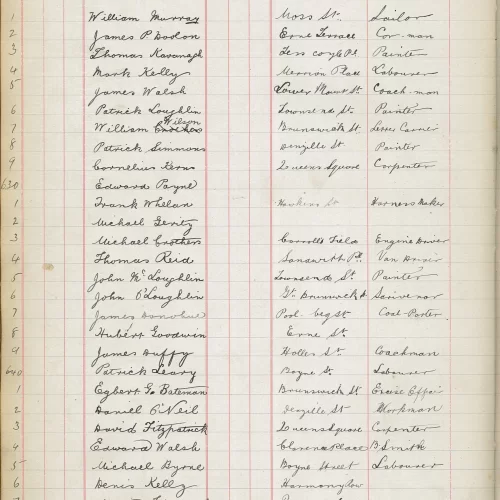 1 William Murray Moss St. Sailor
2 James P Dodon Erne Terrace Car-man
3 Thomas Kavanagh Painter
4 Mark Kelly Merrion Place Labourer
5 James Walsh Lower Mount St. Coach-man
6 Patrick Loughlin Townsend St. Painter
7 William Wilson Brunswick St.
8 Patrick Simmons Denzille St Painter
9 Cornelius Kerns Queens Square Carpenter
630 Edward Payne
1 Frank Whelan Hawkins St Harness Maker
2 Michael Gerity
3 Michael Crothers Carrolls Field Engine Driver
4 Thomas Reid Sandwith Pl. Van Driver
5 John McLoughlin Townsend St. Painter
6 John O'Loughlin Gt. Brunswick St Scrivenor
7 James Donohue Pool beg St Coal Porter
8 Hubert Goodwin Erne St.
9 James Duffy Holles St. Coachman
640 Patrick Leary Boyne St. Labourer
1 Egbert G. Bateman Brunswick St. Excise Officer
2 Daniel O'Neil Denzille St Workman
3 David Fitzpatrick Queens Square Carpenter
4 Edward Walsh Clarence Place B. Smith
5 Michael Byrne Boyne Street Labourer
6 Denis Kelly Harmony Row